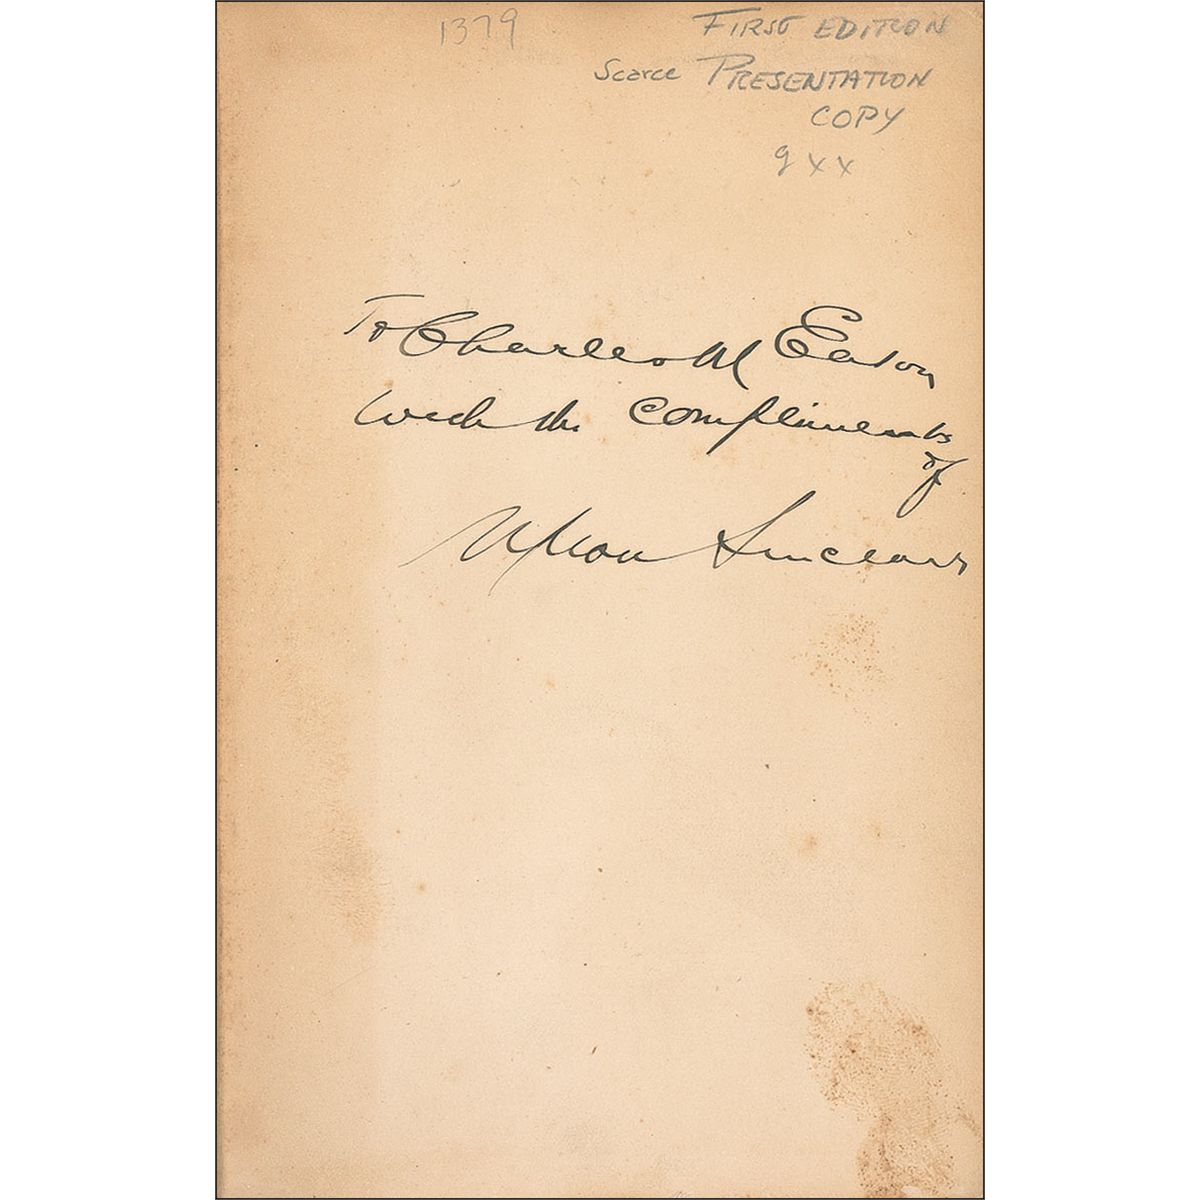 1379
FIRST EDITION
Scarce PRESENTATION
COPY
gxx
To Charles M Eaton
with the compliments
of
Upton Sinclair